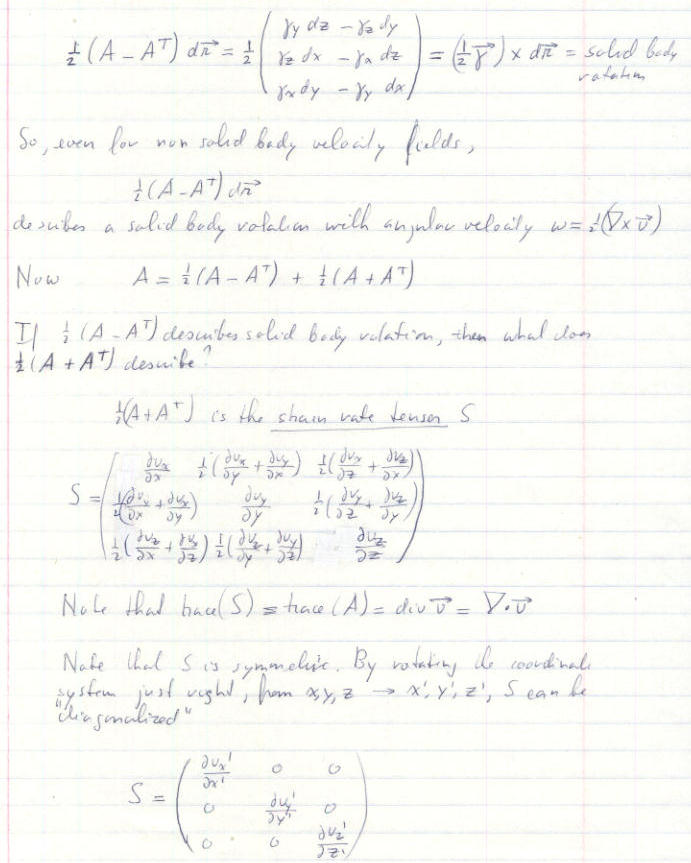 ½(A − Aᵀ) dr⃗ = ½ ( γy dz − γz dy ; γz dx − γx dz ; γx dy − γy dx ) = (½ γ⃗) × dr⃗ = solid body rotation
So, even for non solid body velocity fields,
½(A − Aᵀ) dr⃗
describes a solid body rotation with angular velocity ω = ½(∇×v⃗)
Now A = ½(A − Aᵀ) + ½(A + Aᵀ)
If ½(A − Aᵀ) describes solid body rotation, then what does
½(A + Aᵀ) describe?
½(A + Aᵀ) is the strain rate tensor S
S = ( ∂vx/∂x ½(∂vx/∂y + ∂vy/∂x) ½(∂vx/∂z + ∂vz/∂x)
½(∂vy/∂x + ∂vx/∂y) ∂vy/∂y ½(∂vy/∂z + ∂vz/∂y)
½(∂vz/∂x + ∂vx/∂z) ½(∂vz/∂y + ∂vy/∂z) ∂vz/∂z )
Note that trace(S) = trace(A) = div v⃗ = ∇·v⃗
Note that S is symmetric. By rotating the coordinate
system just right, from x,y,z → x',y',z', S can be
"diagonalized"
S = ( ∂vx'/∂x' 0 0
0 ∂vy'/∂y' 0
0 0 ∂vz'/∂z' )